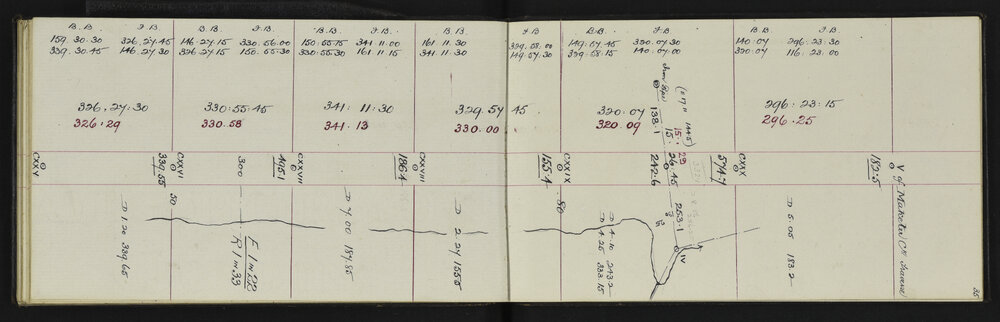 B.B. F.B. B.B. F.B. B.B. F.B. B.B. F.B. B.B. F.B. B.B. F.B.
159.30.30 326.27.45 146.27.15 330.56.00 341.11.00 161.11.30 329.58.00 149.57.45 320.07.30 140.07 296.23.30
339.30.45 146.27.30 326.27.15 150.55.30 330.55.30 161.11.15 341.11.30 149.57.30 329.58.15 140.07.00 320.07 116.23.00
326.27:30 330:55:45 341.11:30 329.57 45 320.07 296:23:15
326:29 330.58 341.13 330.00 320.09 296.25
138.1
15: 26.45
15: 29
CXXV
339.55
CXXVI
300
495.1
CXXVII
186.4
CXXVIII
155.4
CXXIX
242.6
574.7
CXXX
182.5
50
80
253.1
IV
D 1.20 339.65
E 1 in 22
R 1 in 33
D 4.00 187.85
D 2.27 155.5
D 4.10 243.2
D 4.25 333.15
D 5.05 183.2
35